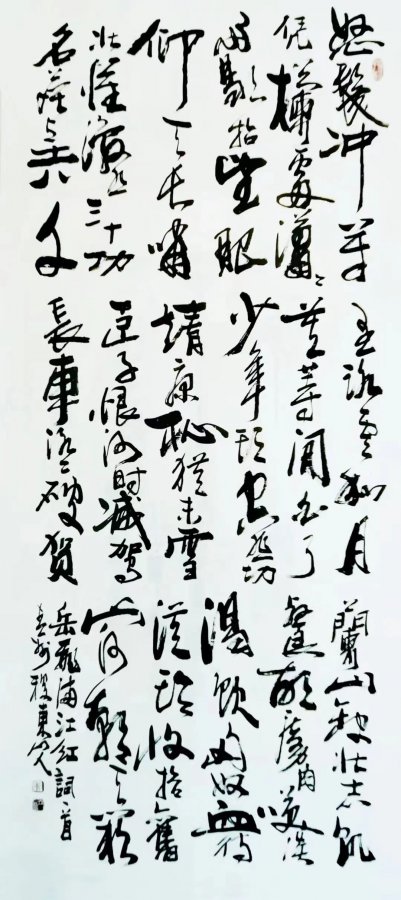 怒髮冲冠
凭欄處瀟瀟
雨歇抬望眼
仰天长嘯
壮懷激烈三十功
名塵与土八千
里路雲和月
莫等闲白了
少年頭空悲切
靖康恥犹未雪
臣子恨何时滅駕
長車踏破賀
蘭山缺壮志飢
餐胡虜肉笑谈
渴飲匈奴血待
從頭收拾舊
山河朝天闕
岳飛满江红詞一首